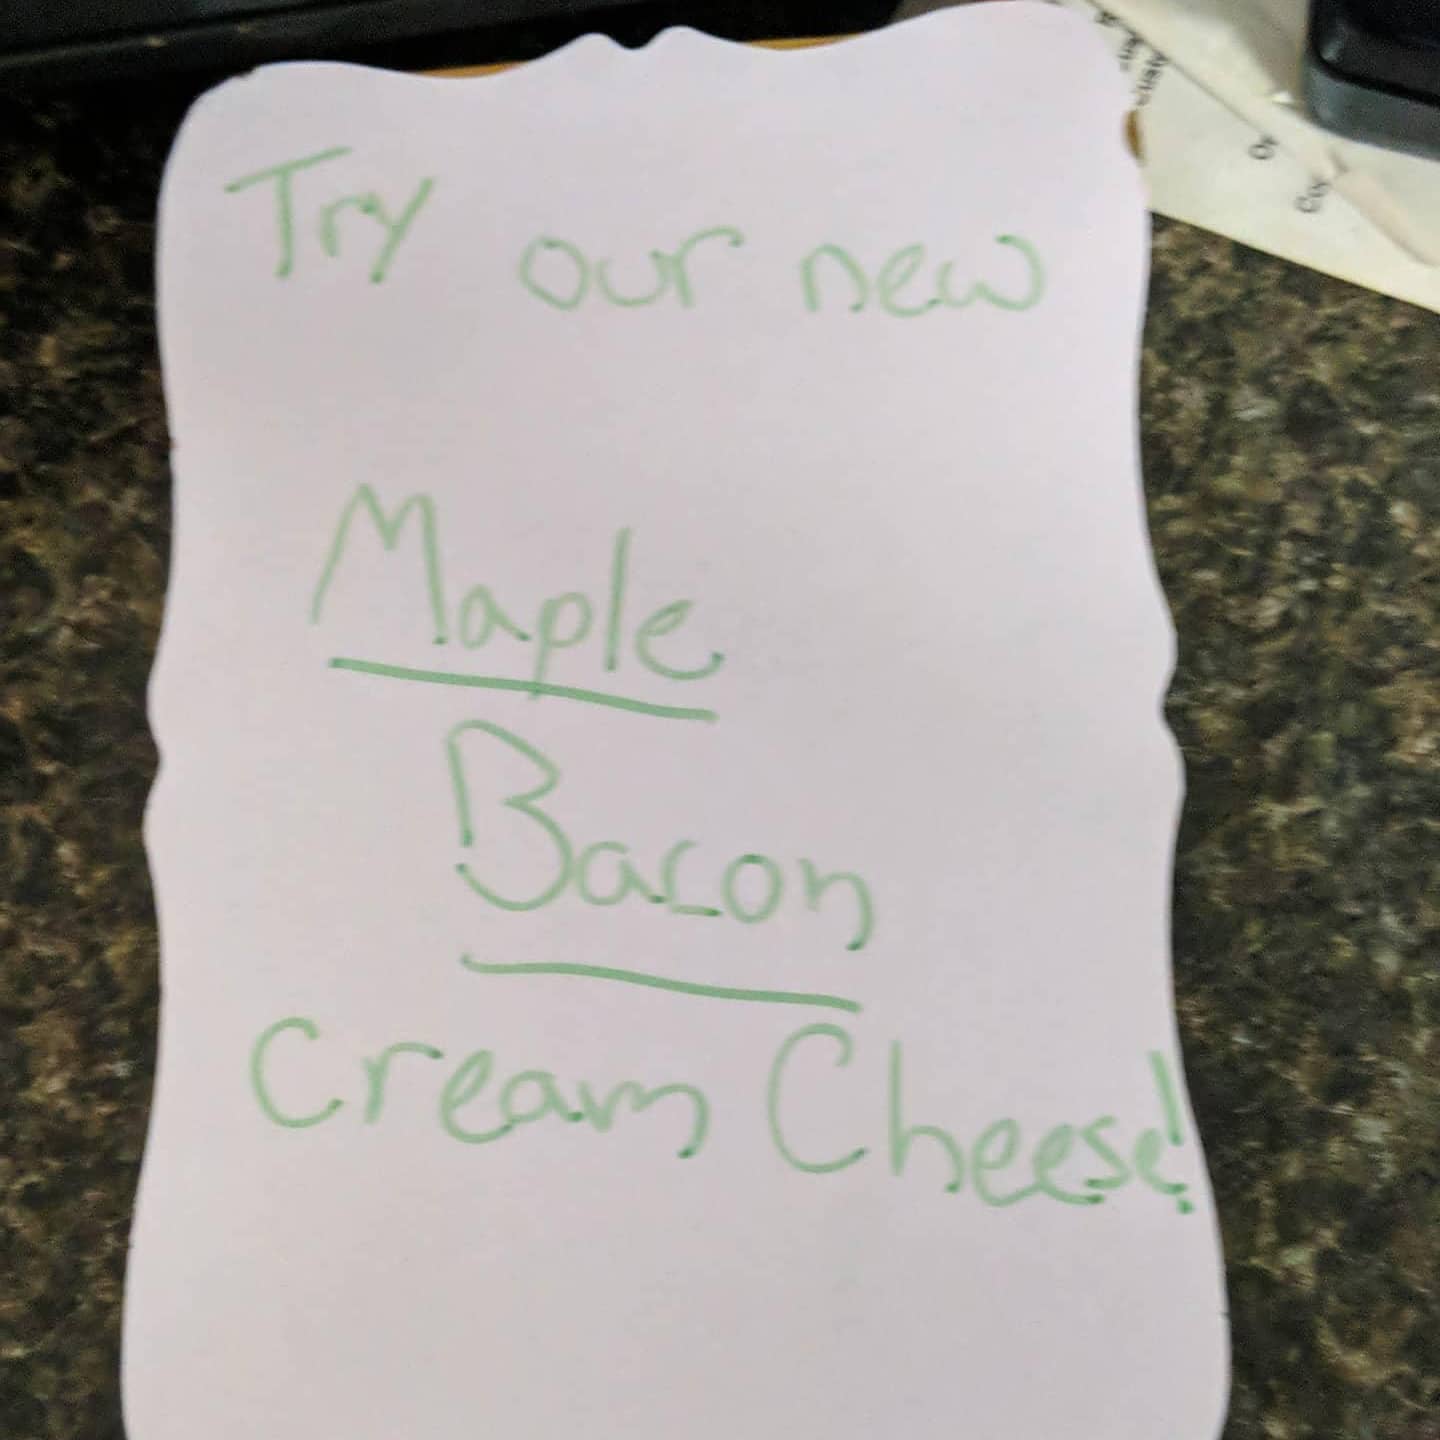 Try our new
Maple
Bacon
Cream Cheese!